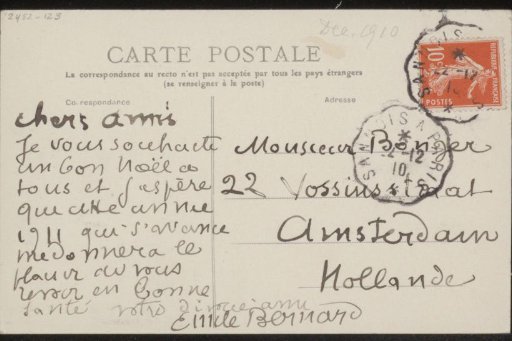 2451-123
Dec. 1910
CARTE POSTALE
La correspondance au recto n'est pas acceptée par tous les pays étrangers
(se renseigner à la poste)
Correspondance
Adresse
chers amis
Je vous souhaite
un bon Noël a
tous et j'espère
que cette année
1911 qui s'avance
me donnera le
plaisir de vous
revoir en bonne
santé votre dévoué ami
Emile Bernard
Monsieur Bonger
22 Vossinstraat
Amsterdam
Hollande
10c
REPUBLIQUE FRANÇAISE
POSTES
SANNOIS A PARIS
22-12
10